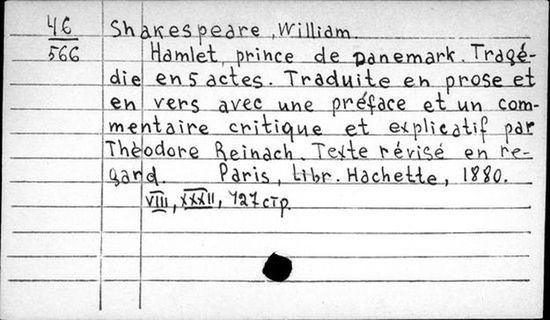 46
566
Shakespeare, William.
Hamlet, prince de Danemark. Tragé-
die en 5 actes. Traduite en prose et
en vers avec une préface et un com-
mentaire critique et explicatif par
Théodore Reinach. Texte révisé en re-
gard. Paris, Libr. Hachette, 1880.
VIII, XXXII, 727 стр.